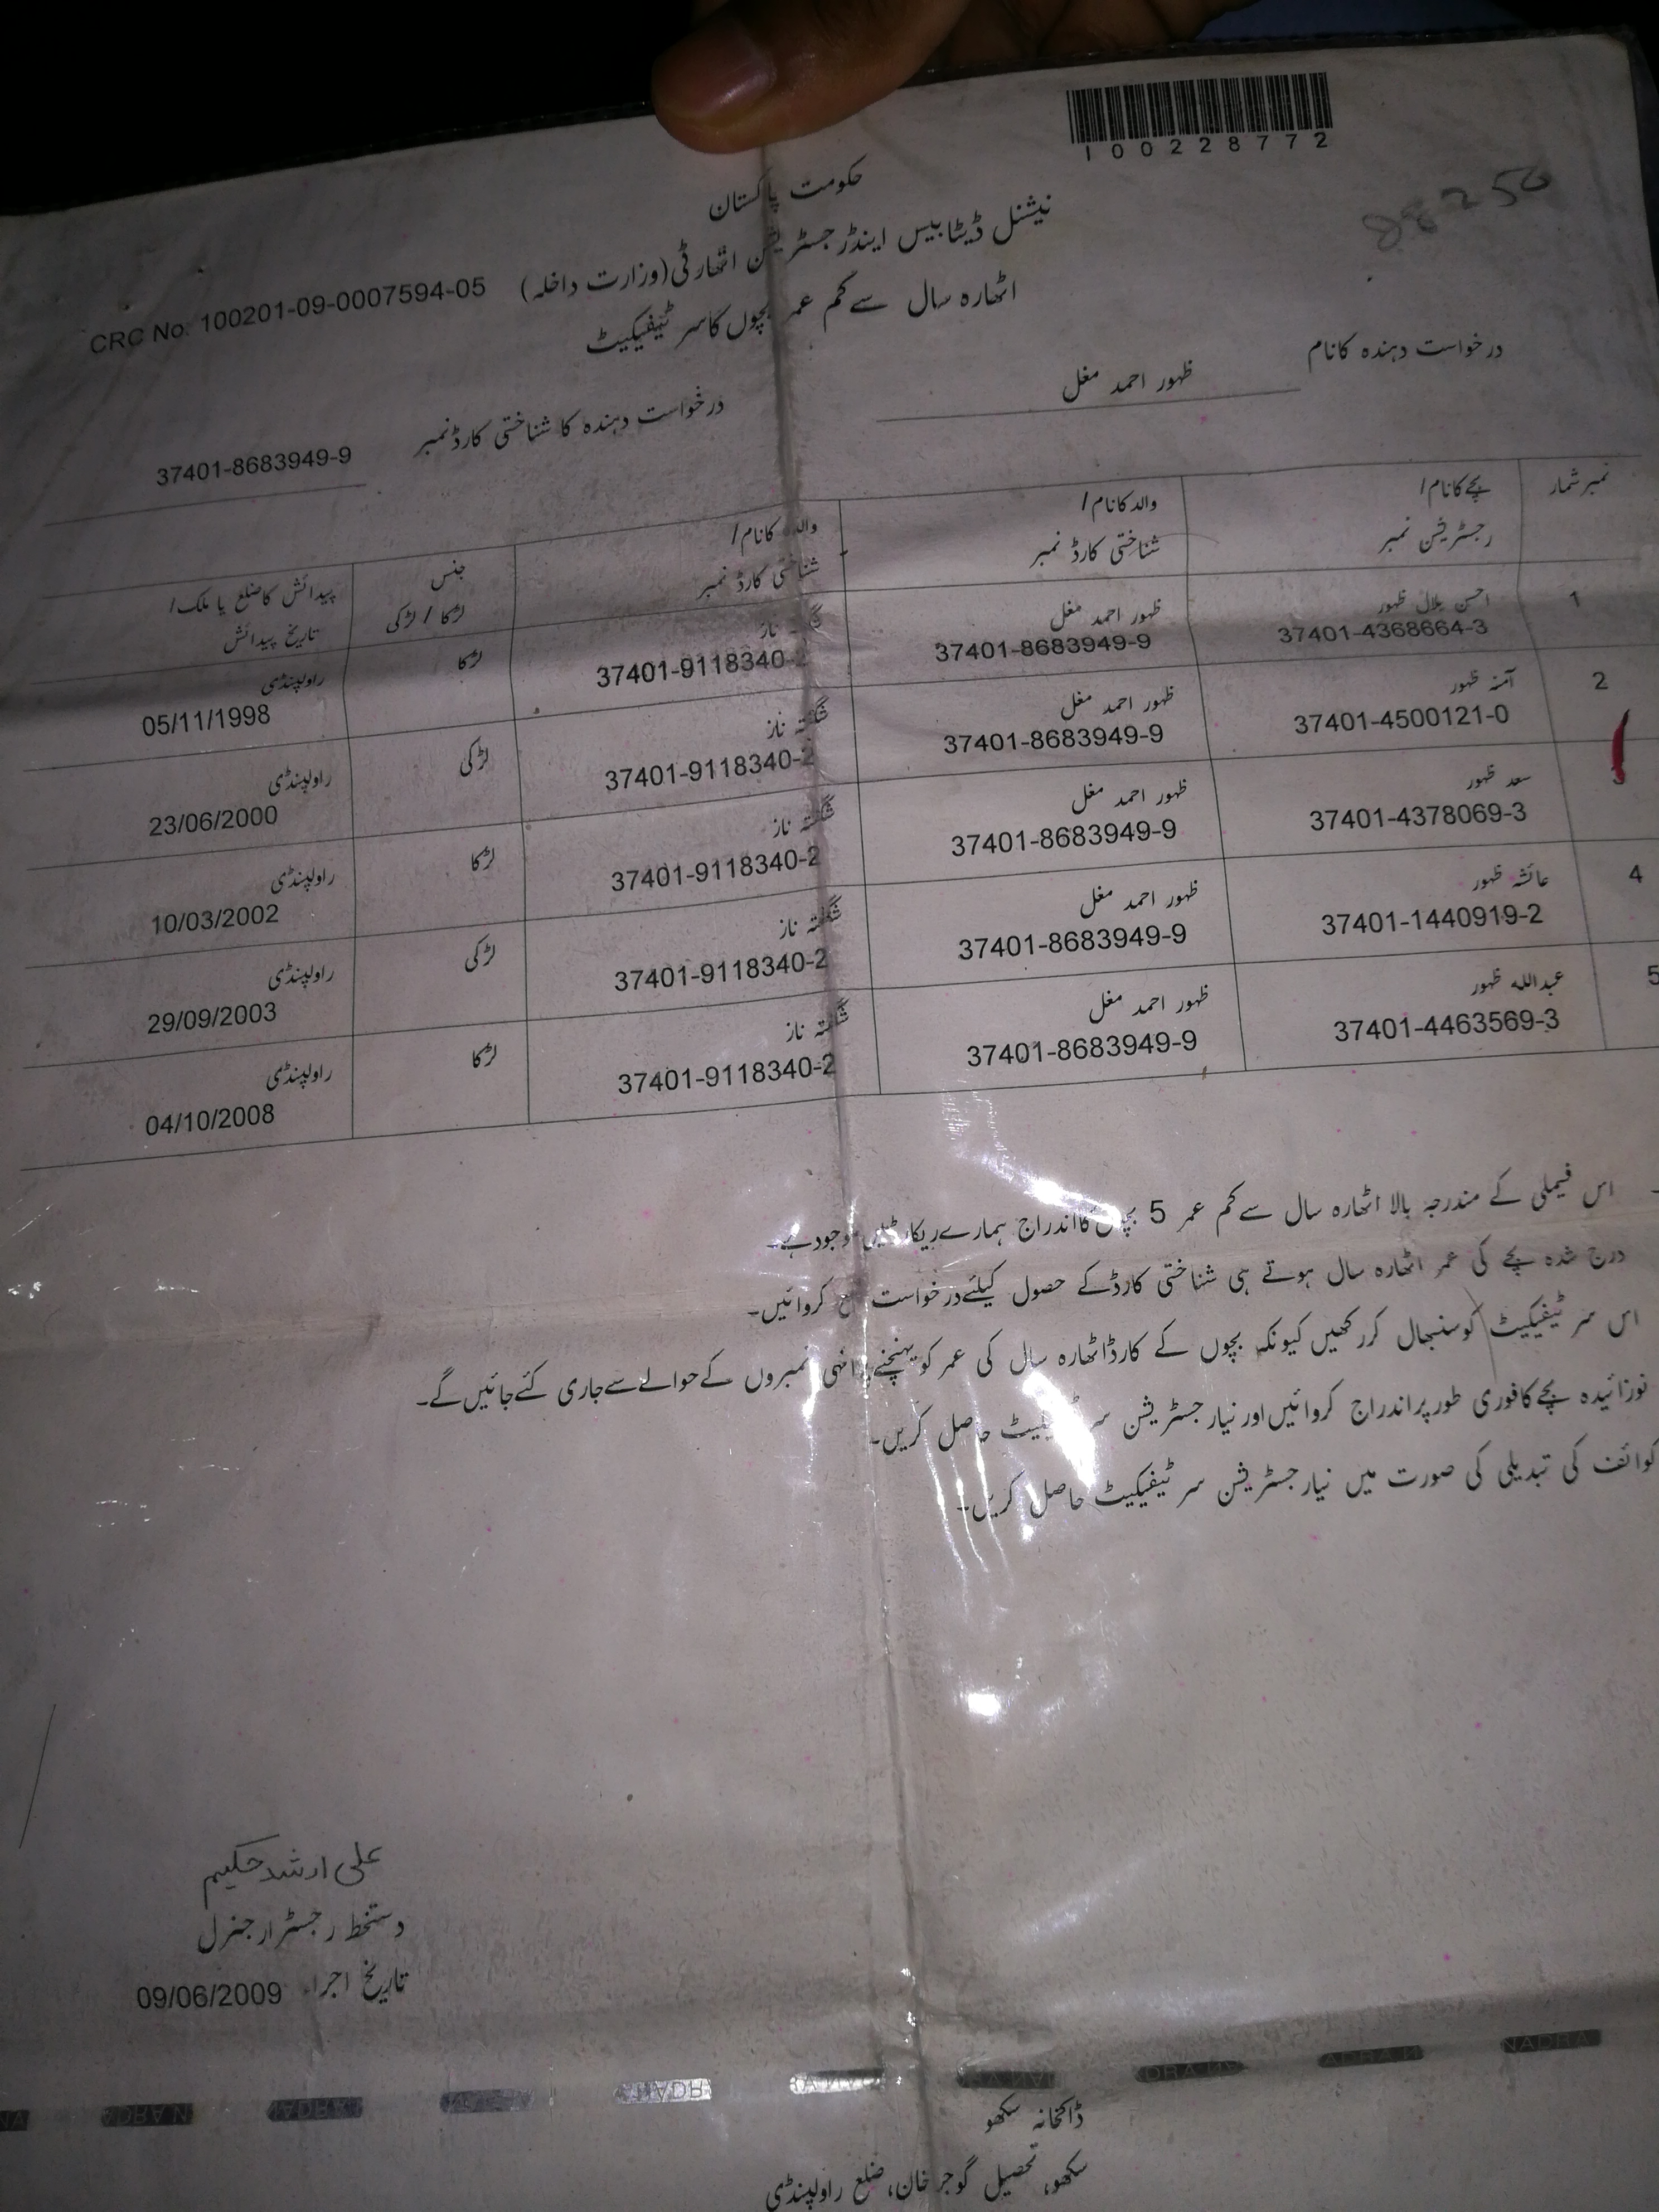 100228772
88250
حکومت پاکستان
نیشنل ڈیٹابیس اینڈ رجسٹریشن اتھارٹی (وزارت داخلہ)
CRC No: 100201-09-0007594-05
اٹھارہ سال سے کم عمر بچوں کا سرٹیفیکیٹ
درخواست دہندہ کا نام ظہور احمد مغل
درخواست دہندہ کا شناختی کارڈ نمبر 37401-8683949-9
نمبر شمار بچے کا نام/ والد کا نام/ کا نام/ جنس پیدائش کا ضلع یا ملک/
رجسٹریشن نمبر شناختی کارڈ نمبر شناختی کارڈ نمبر لڑکا / لڑکی تاریخ پیدائش
1 احسن بلال ظہور ظہور احمد مغل ناز لڑکا راولپنڈی
37401-4368664-3 37401-8683949-9 37401-9118340-2 05/11/1998
2 آمنہ ظہور ظہور احمد مغل شگفتہ ناز لڑکی راولپنڈی
37401-4500121-0 37401-8683949-9 37401-9118340-2 23/06/2000
3 سعد ظہور ظہور احمد مغل شگفتہ ناز لڑکا راولپنڈی
37401-4378069-3 37401-8683949-9 37401-9118340-2 10/03/2002
4 عائشہ ظہور ظہور احمد مغل شگفتہ ناز لڑکی راولپنڈی
37401-1440919-2 37401-8683949-9 37401-9118340-2 29/09/2003
5 عبداللہ ظہور ظہور احمد مغل شگفتہ ناز لڑکا راولپنڈی
37401-4463569-3 37401-8683949-9 37401-9118340-2 04/10/2008
اس فیملی کے مندرجہ بالا اٹھارہ سال سے کم عمر 5 بچوں کا اندراج ہمارے ریکارڈ میں موجود ہے۔
درج شدہ بچے کی عمر اٹھارہ سال ہوتے ہی شناختی کارڈ کے حصول کیلئے درخواست کروائیں۔
اس سرٹیفیکیٹ کو سنبھال کر رکھیں کیونکہ بچوں کے کارڈ اٹھارہ سال کی عمر کو پہنچنے پر انہی نمبروں کے حوالے سے جاری کئے جائیں گے۔
نوزائیدہ بچے کا فوری طور پر اندراج کروائیں اور نیا رجسٹریشن سرٹیفیکیٹ حاصل کریں۔
کوائف کی تبدیلی کی صورت میں نیا رجسٹریشن سرٹیفیکیٹ حاصل کریں۔
علی ارشد حکیم
دستخط رجسٹرار جنرل
تاریخ اجراء 09/06/2009
NADRA
ڈاکخانہ سکھو
سکھو، تحصیل گوجر خان، ضلع راولپنڈی